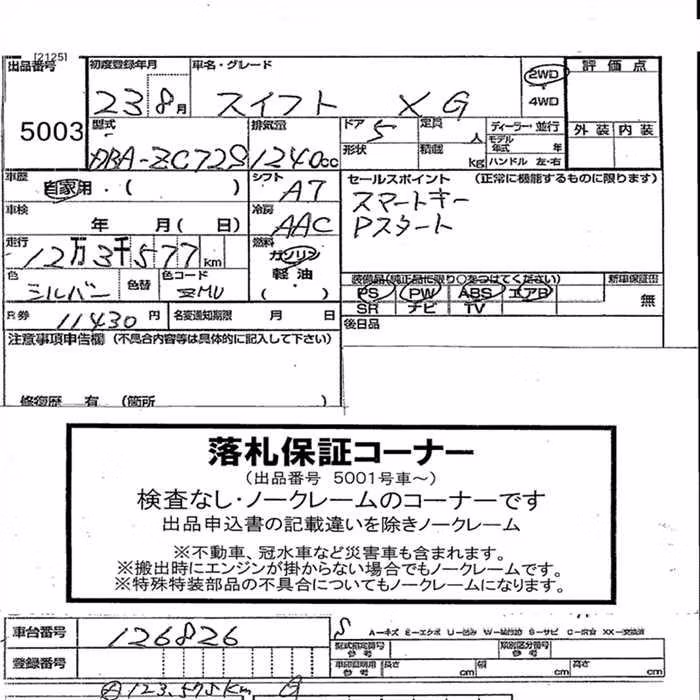 [2125]
出品番号 初度登録年月 車名・グレード 2WD 評価点
23 8月 スイフト XG 4WD
5003 型式 排気量 ドア 5 定員 人 ディーラー・並行 外装 内装
DBA-ZC72S 1240cc 形状 積載 kg モデル年式 年 ハンドル 左・右
車歴 自家用・( ) シフト A7 セールスポイント (正常に機能するものに限ります)
スマートキー
車検 年 月( 日) 冷房 AAC Pスタート
走行 12万3千577km 燃料 ガソリン
軽油
( ・ )
色 シルバー 色替 色コード ZMU 装備品(純正品に限り○をつけてください) 新車保証書
PS PW ABS エアB 無
SR ナビ TV
R券 11430円 名変通知期限 月 日 後日品
注意事項申告欄 (不具合内容等は具体的に記入して下さい)
修復歴 有 (箇所 )
落札保証コーナー
(出品番号 5001号車~)
検査なし・ノークレームのコーナーです
出品申込書の記載違いを除きノークレーム
※不動車、冠水車など災害車も含まれます。
※搬出時にエンジンが掛からない場合でもノークレームです。
※特殊特装部品の不具合についてもノークレームになります。
車台番号 126826 S A-キズ E-エクボ U-凹み S-サビ
登録番号 型式指定番号 参考 類別区分番号 参考
参考 長さ cm 幅 cm 高さ cm